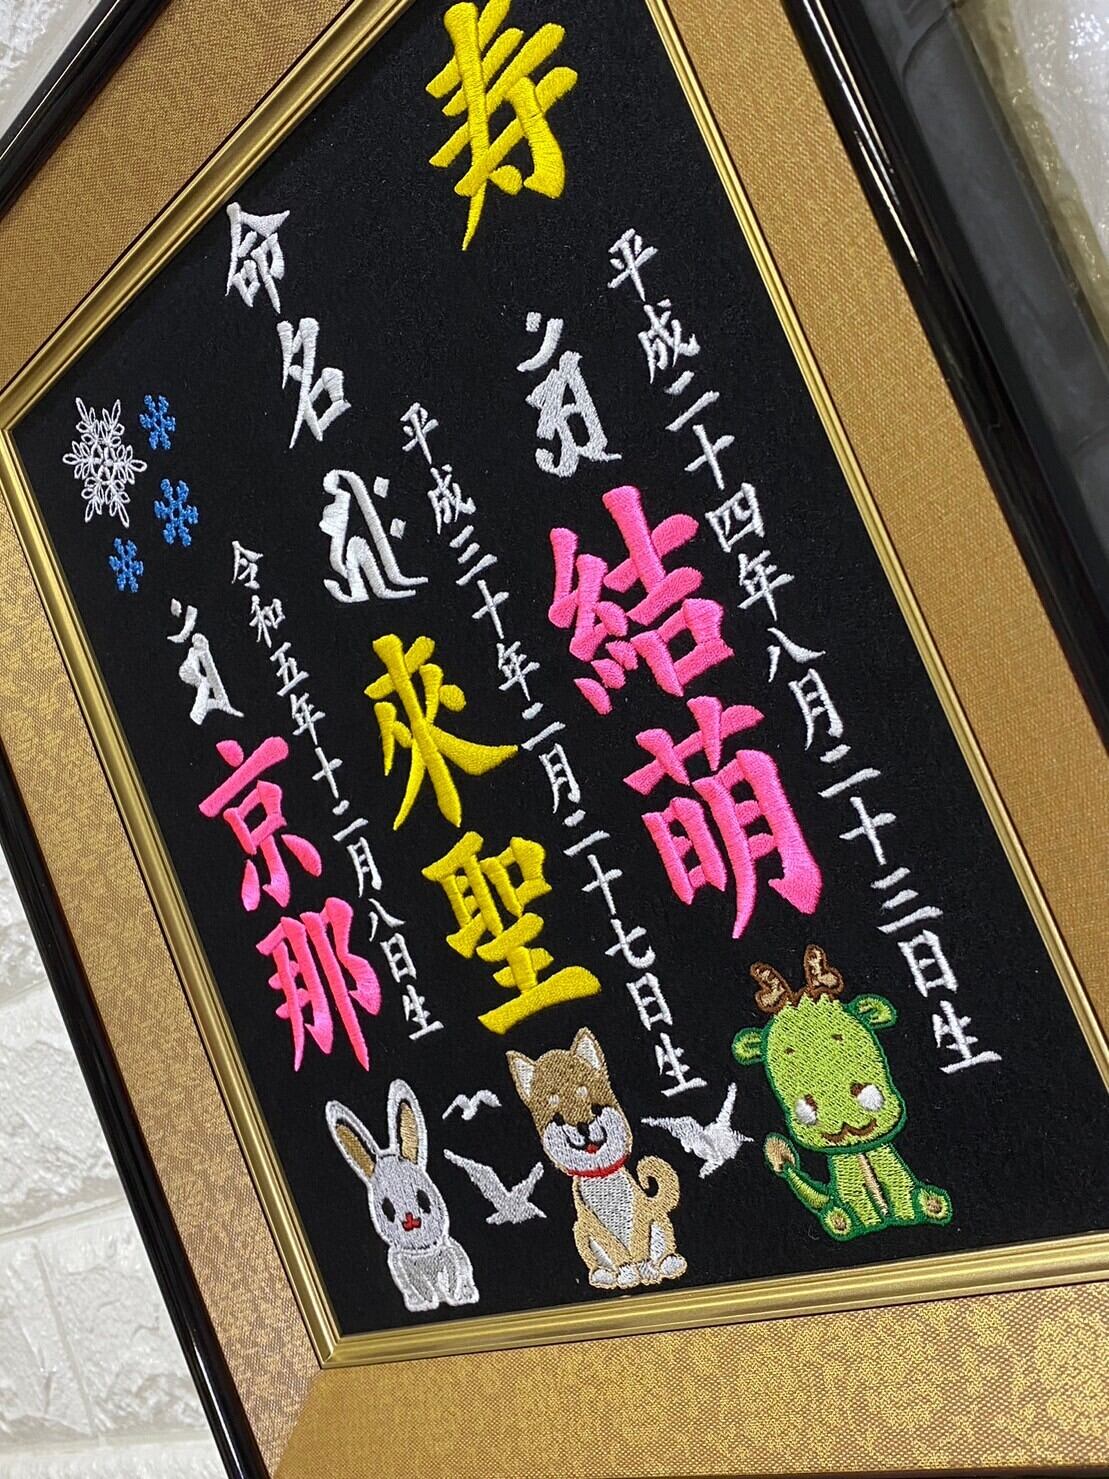 寿
平成二十四年八月二十三日生
結萌
平成三十年二月二十七日生
來聖
令和五年十二月八日生
京那
命名